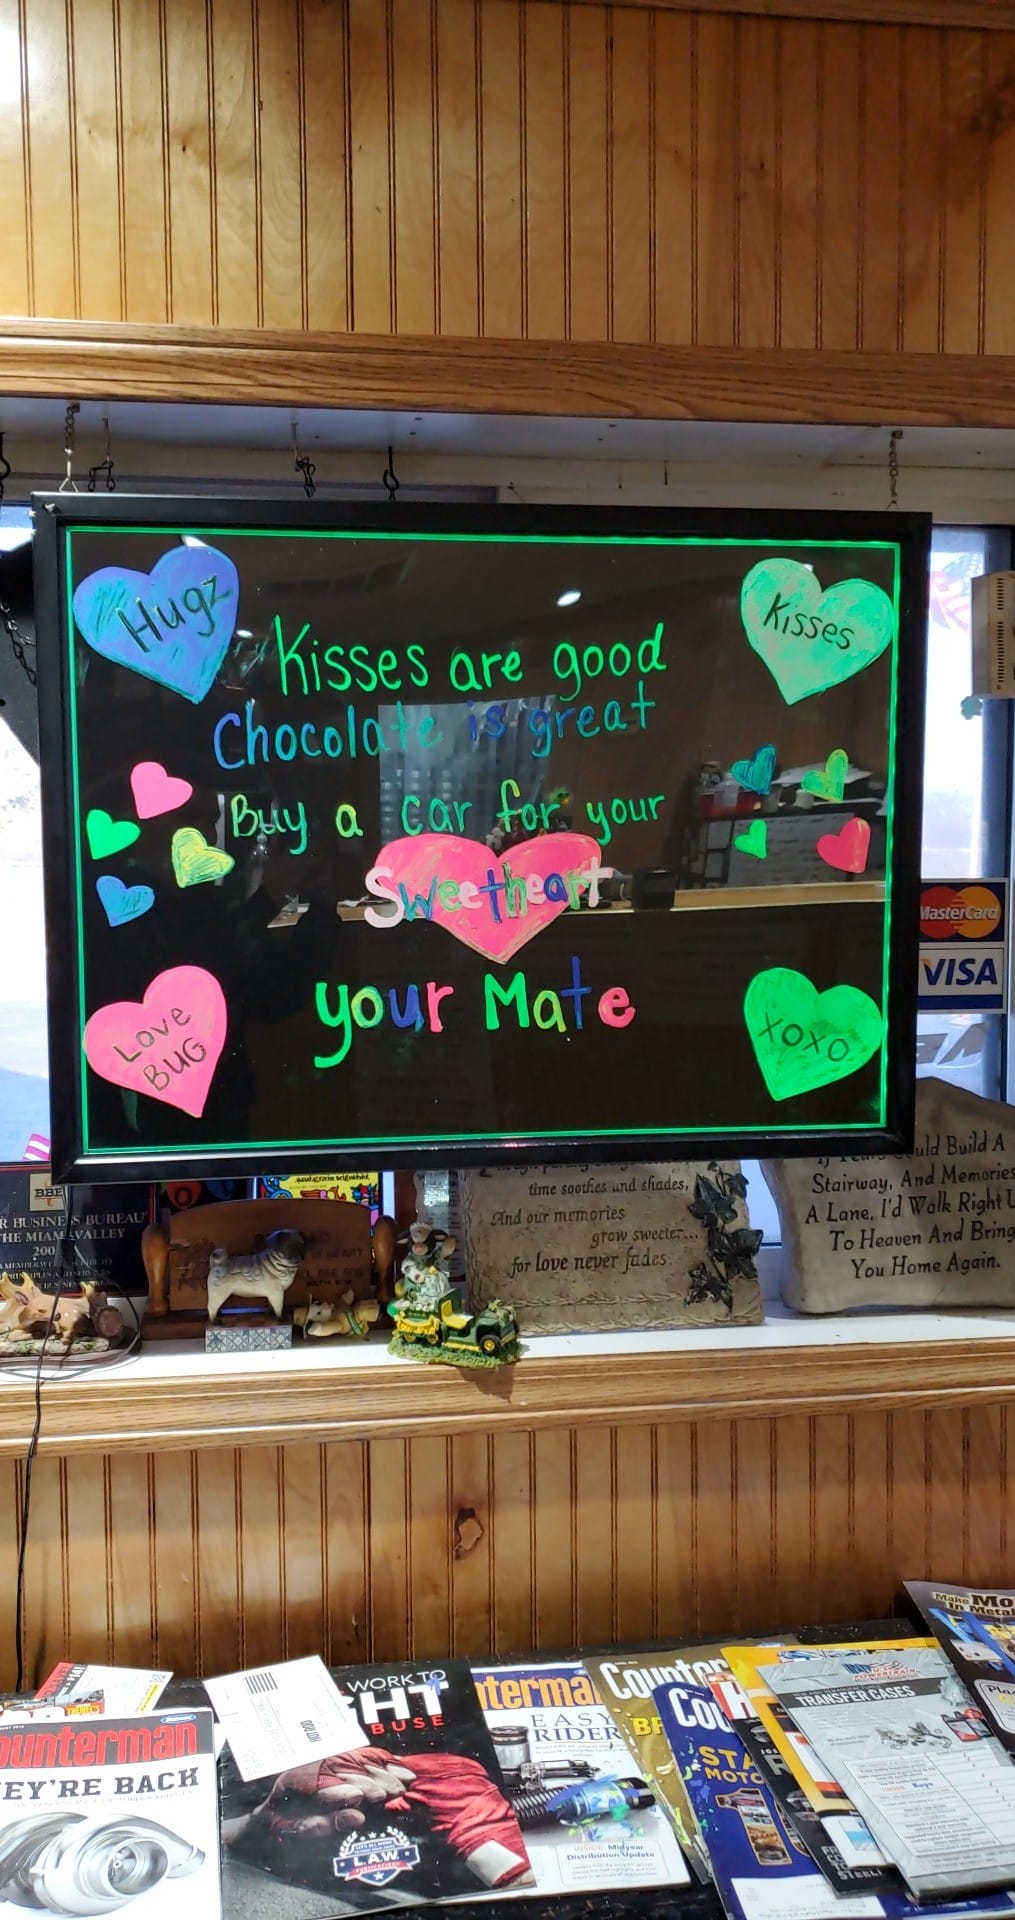 Hugz
Kisses
Kisses are good
Chocolate is great
Buy a car for your
Sweetheart
your Mate
Love
BUG
XOXO
MasterCard
VISA
BBB
BUSINESS BUREAU
THE MIAMI VALLEY
time soothes and shades,
And our memories
grow sweeter...
for love never fades.
If Tears Could Build A
Stairway, And Memories
A Lane, I'd Walk Right
To Heaven And Bring
You Home Again.
WORK TO
BUSE
L.A.W.
THEY'RE BACK
EASY
RIDER
INSIDE: Midyear
Distribution Update
STA
MOTO
TRANSFER CASES
Make
In Metal